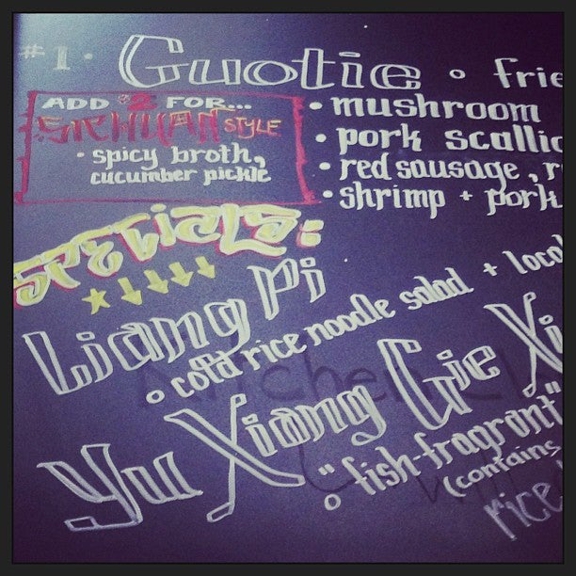 #1 · Guotie ∘ frie
ADD $2 FOR...
SICHUAN STYLE
• spicy broth,
cucumber pickle
• mushroom
• pork scallio
• red sausage, r
• shrimp + pork
SPECIALS:
Liang Pi
∘ cold rice noodle salad + loca
Yu Xiang Gie Xi
∘ "fish-fragrant"
(contains
rice